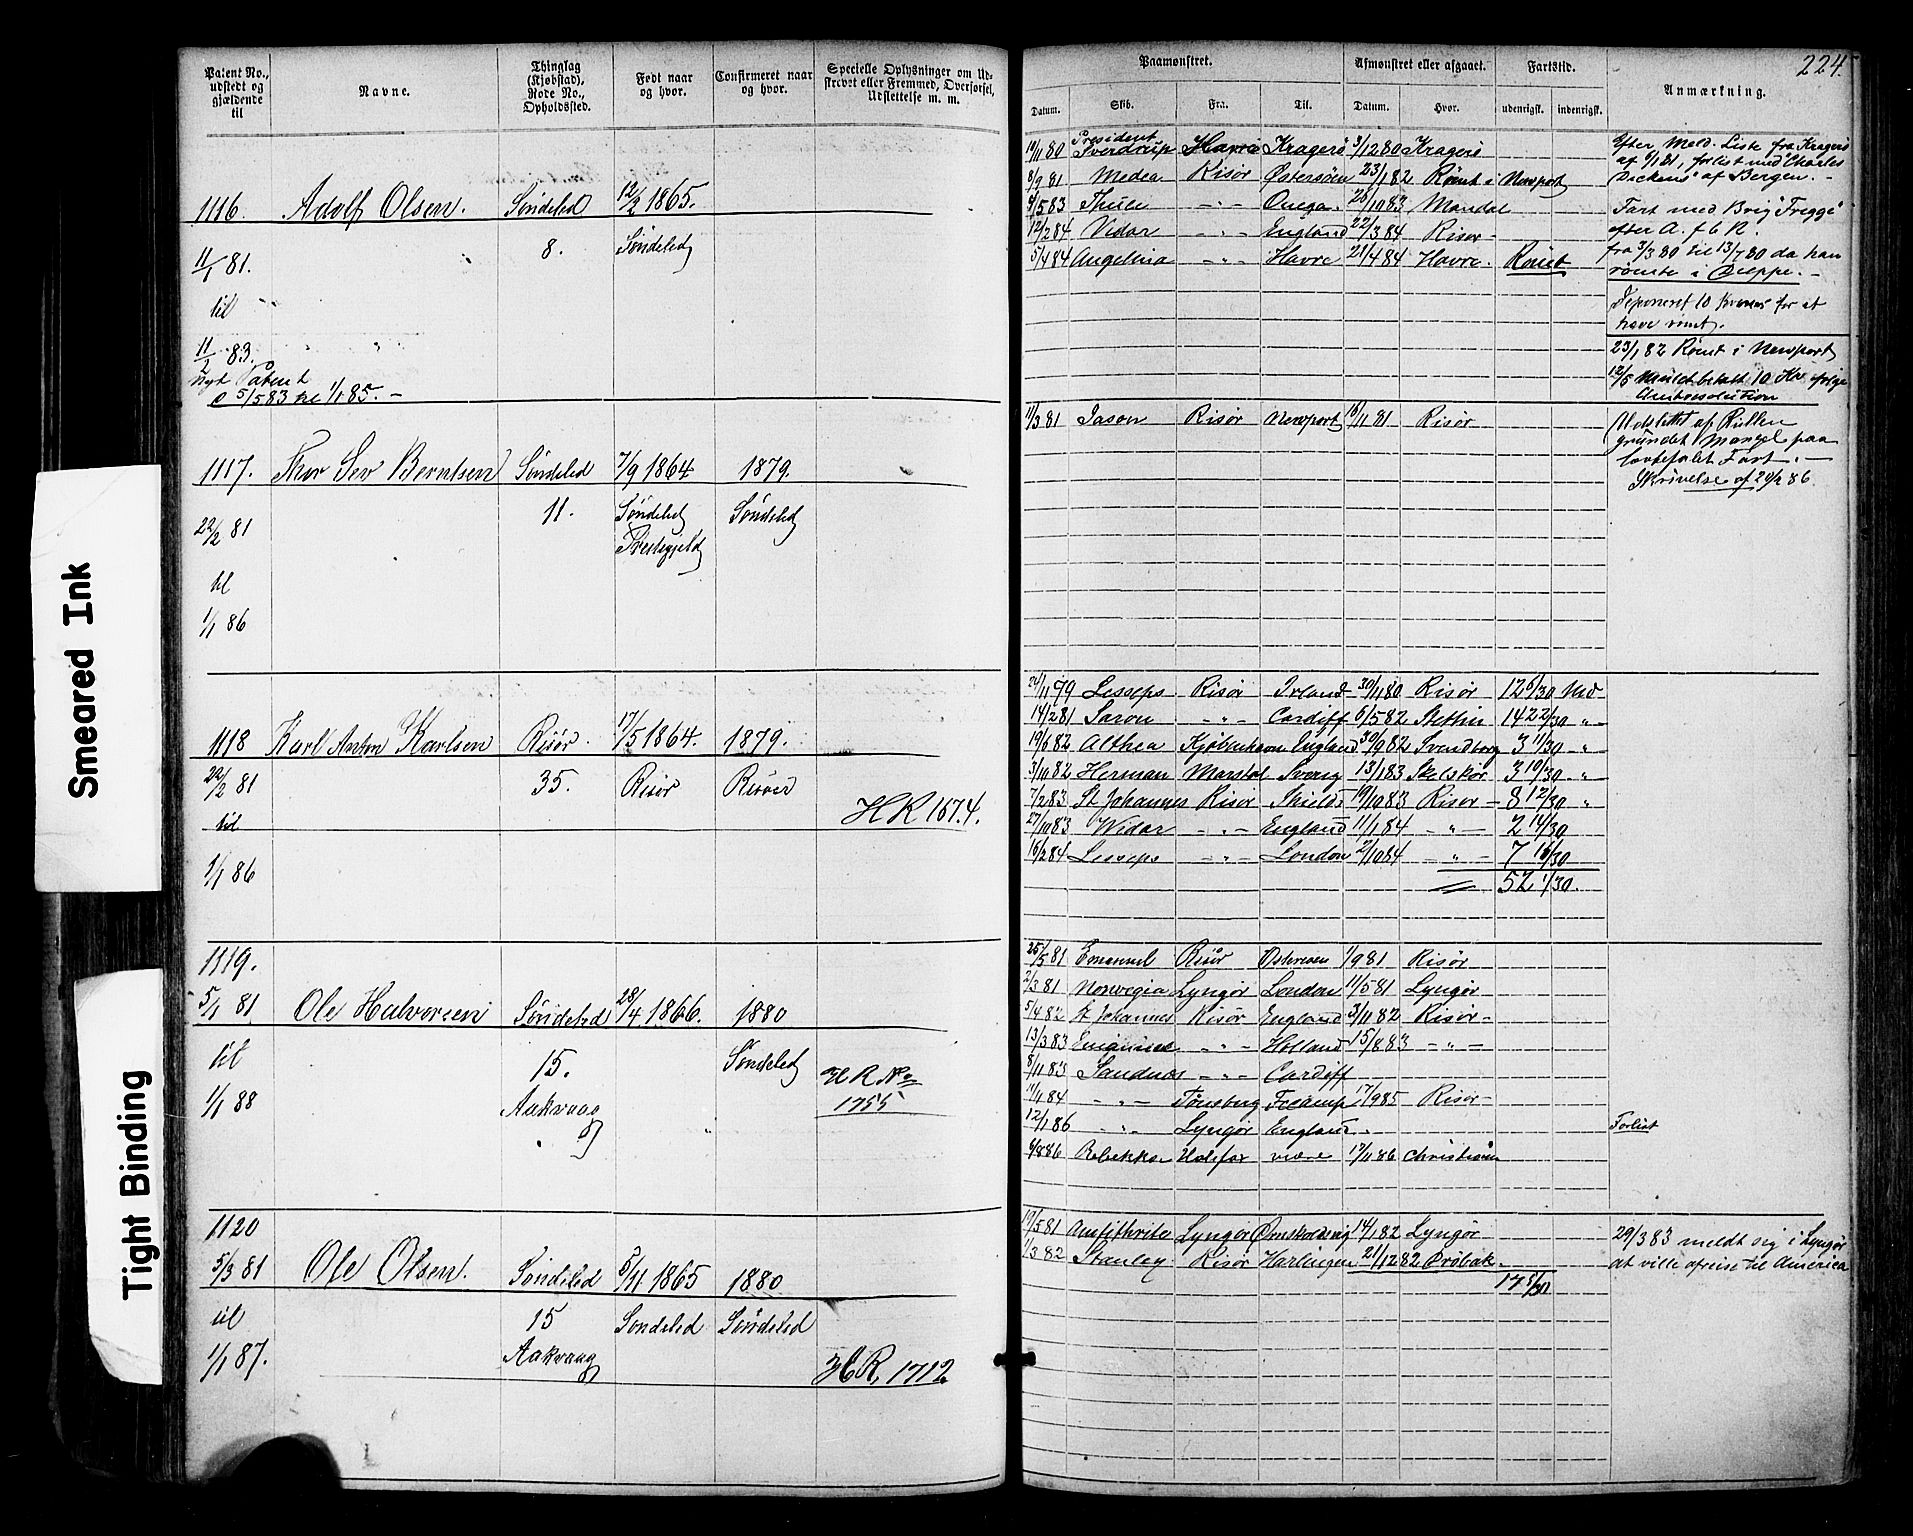 Smeared Ink
Tight Binding
224.
Patent No., udstedt og gjældende til
Navne.
Thinglag (Kjøbstad), Rode No., Opholdssted.
Født naar og hvor.
Confirmeret naar og hvor.
Specielle Oplysninger om Udskrevet eller Fremmed, Overførsel, Udslettelse m. m.
Paamønstret.
Afmønstret eller afgaaet.
Fartstid.
Anmærkning.
Datum.
Skib.
Fra.
Til.
Datum.
Hvor.
udenrigsk.
indenrigsk.
1116. Adolf Olsen. Søndeled 12/2 1865.
11/1 81. 8. Søndeled
til
11/2 83.
nyt Patent
5/5 83 til 1/1 85. -
President
10/11 80 Sverdrup Havre Kragerø 3/12 80 Kragerø
8/9 81 Medea Risør Østersøen 23/1 82 Rømt i Newport
8/5 83 Thule -"- Onega. 28/10 83 Mandal
12/2 84 Vidar -"- England 22/3 84 Risør -
5/4 84 Angelina -"- Havre 21/4 84 Havre. Rømt
Efter Meld. Liste fra Kragerø
af 6/1 81, forlist med "Charles
Dickens" af Bergen. -
Fart med Brig "Freggè"
efter A. f 6 R.
fra 3/3 80 til 13/7 80 da han
rømte i Dieppe. -
Deponeret 10 Kroner for at
have rømt.
23/1 82 Rømt i Newport
12/5 Mulct betalt 10 Kr ifølge
Amtresolution
1117. Thor Sev Berntsen Søndeled 7/9 1864 1879.
22/2 81 11. Søndeled Søndeled
Prestegjeld
til
1/1 86
11/3 81 Jason Risør Newport 18/11 81 Risør
Udslettet af Rullen
grundet Mangel paa
lovbefalet Fart. -
Skrivelse af 20/2 86.
1118 Karl Anton Karlsen Risør. 17/5 1864. 1879.
22/2 81 35. Risør Risøer
til HR 1674.
1/1 86
24/11 79 Lesseps Risør Irland 30/11 80 Risør 12 6/30 Md
14/2 81 Saron -"- Cardiff 6/5 82 Stettin 14 22/30 "
19/6 82 Althea Kjøbenhavn England 30/9 82 Svendborg 3 11/30 "
3/10 82 Herman Marstal Sverig 13/1 83 Skelskør 3 10/30 "
7/2 83 St Johannes Risør Shields 19/10 83 Risør - 8 12/30 "
27/10 83 Widar -"- England 11/1 84 -"- 2 14/30
16/2 84 Lesseps -"- London 2/10 84 -"- 7 16/30
52 1/30.
1119.
5/1 81 Ole Halvorsen Søndeled 28/4 1866. 1880
til 15. Søndeled HR No
1/1 88 Aakvaag 1755
25/5 81 Emanuel Risør Østersøen 1/9 81 Risør
2/3 81 Norwegia Lyngør London 11/5 81 Lyngør
5/4 82 St Johannes Risør England 3/11 82 Risør -
13/3 83 -"- Holland 15/8 83 -"-
8/11 83 Sandnæs -"- Cardiff
11/1 84 -"- Tønsberg Fecamp 17/9 85 Risør -
12/1 86 -"- Lyngør England.
6/8 86 Rebekka 17/11 86
Forlist
1120
5/3 81 Ole Olsen. Søndeled 5/11 1865 1880
til 15 Søndeled Søndeled
1/1 87. Aakvaag HR, 1712
19/5 81 Amfithrite Lyngør Ørnskoldsvig 14/1 82 Lyngør
1/3 82 Stanley Risør Harlingen 21/12 82 Drøbak.
17 5/30
29/3 83 meldt sig i Lyngør
at ville afreise til America